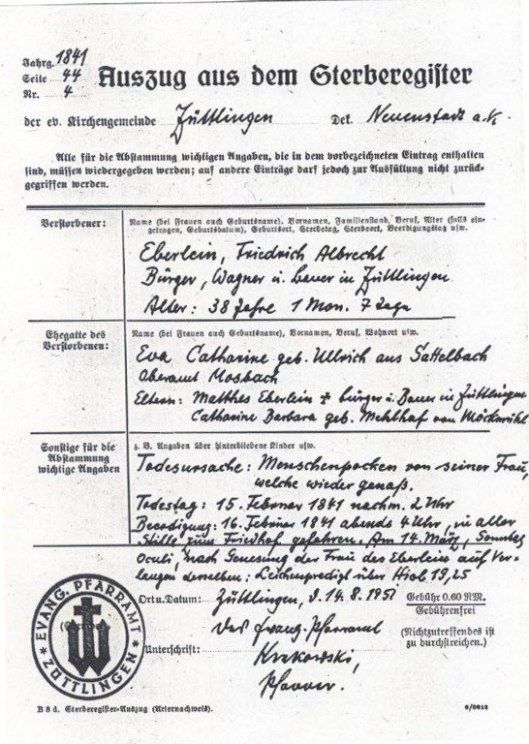 Jahrg. 1841
Seite 44
Nr. 4
Auszug aus dem Sterberegister
der ev. Kirchengemeinde Züttlingen Dek. Neuenstadt a.K.
Alle für die Abstammung wichtigen Angaben, die in dem vorbezeichneten Eintrag enthalten
sind, müssen wiedergegeben werden; auf andere Einträge darf jedoch zur Ausfüllung nicht zurück-
gegriffen werden.
Verstorbener:
Name (bei Frauen auch Geburtsname), Vornamen, Familienstand, Beruf, Alter (falls ein-
getragen, Geburtsdatum), Geburtsort, Sterbetag, Sterbeort, Beerdigungstag usw.
Eberlein, Friedrich Albrecht
Bürger, Wagner u. Bauer in Züttlingen
Alter: 38 Jahre 1 Mon. 7 Tage
Ehegatte des
Verstorbenen:
Name (bei Frauen auch Geburtsname), Vornamen, Beruf, Wohnort usw.
Eva Catharine geb. Ullrich aus Sattelbach
Oberamt Mosbach
Eltern: Matthes Eberlein + Bürger u. Bauer in Züttlingen
Catharine Barbara geb. Mehlhaf von Möckmühl
Sonstige für die
Abstammung
wichtige Angaben
z. B. Angaben über hinterbliebene Kinder usw.
Todesursache: Menschenpocken von seiner Frau,
welche wieder genaß.
Todestag: 15. Februar 1841 nachm. 2 Uhr
Beerdigung: 16. Februar 1841 abends 4 Uhr, in aller
Stille zum Friedhof gefahren. Am 14. März, Sonntag
Oculi, nach Genesung der Frau des Eberlein auf Ver-
langen derselben: Leichenpredigt über Hiob 19,25
Ort u. Datum: Züttlingen, d. 14.8.1951
Gebühr 0.60 RM.
Gebührenfrei
(Nichtzutreffendes ist
zu durchstreichen.)
Das Evang. Pfarramt
Unterschrift: Krakowski,
Pfarrer.
EVANG. PFARRAMT
ZÜTTLINGEN
B 8 d. Sterberegister-Auszug (Ariernachweis).